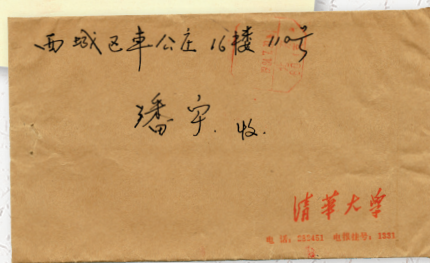 西城区车公庄16楼110号
潘宇 收.
清华大学
电话：282451 电报挂号：1331